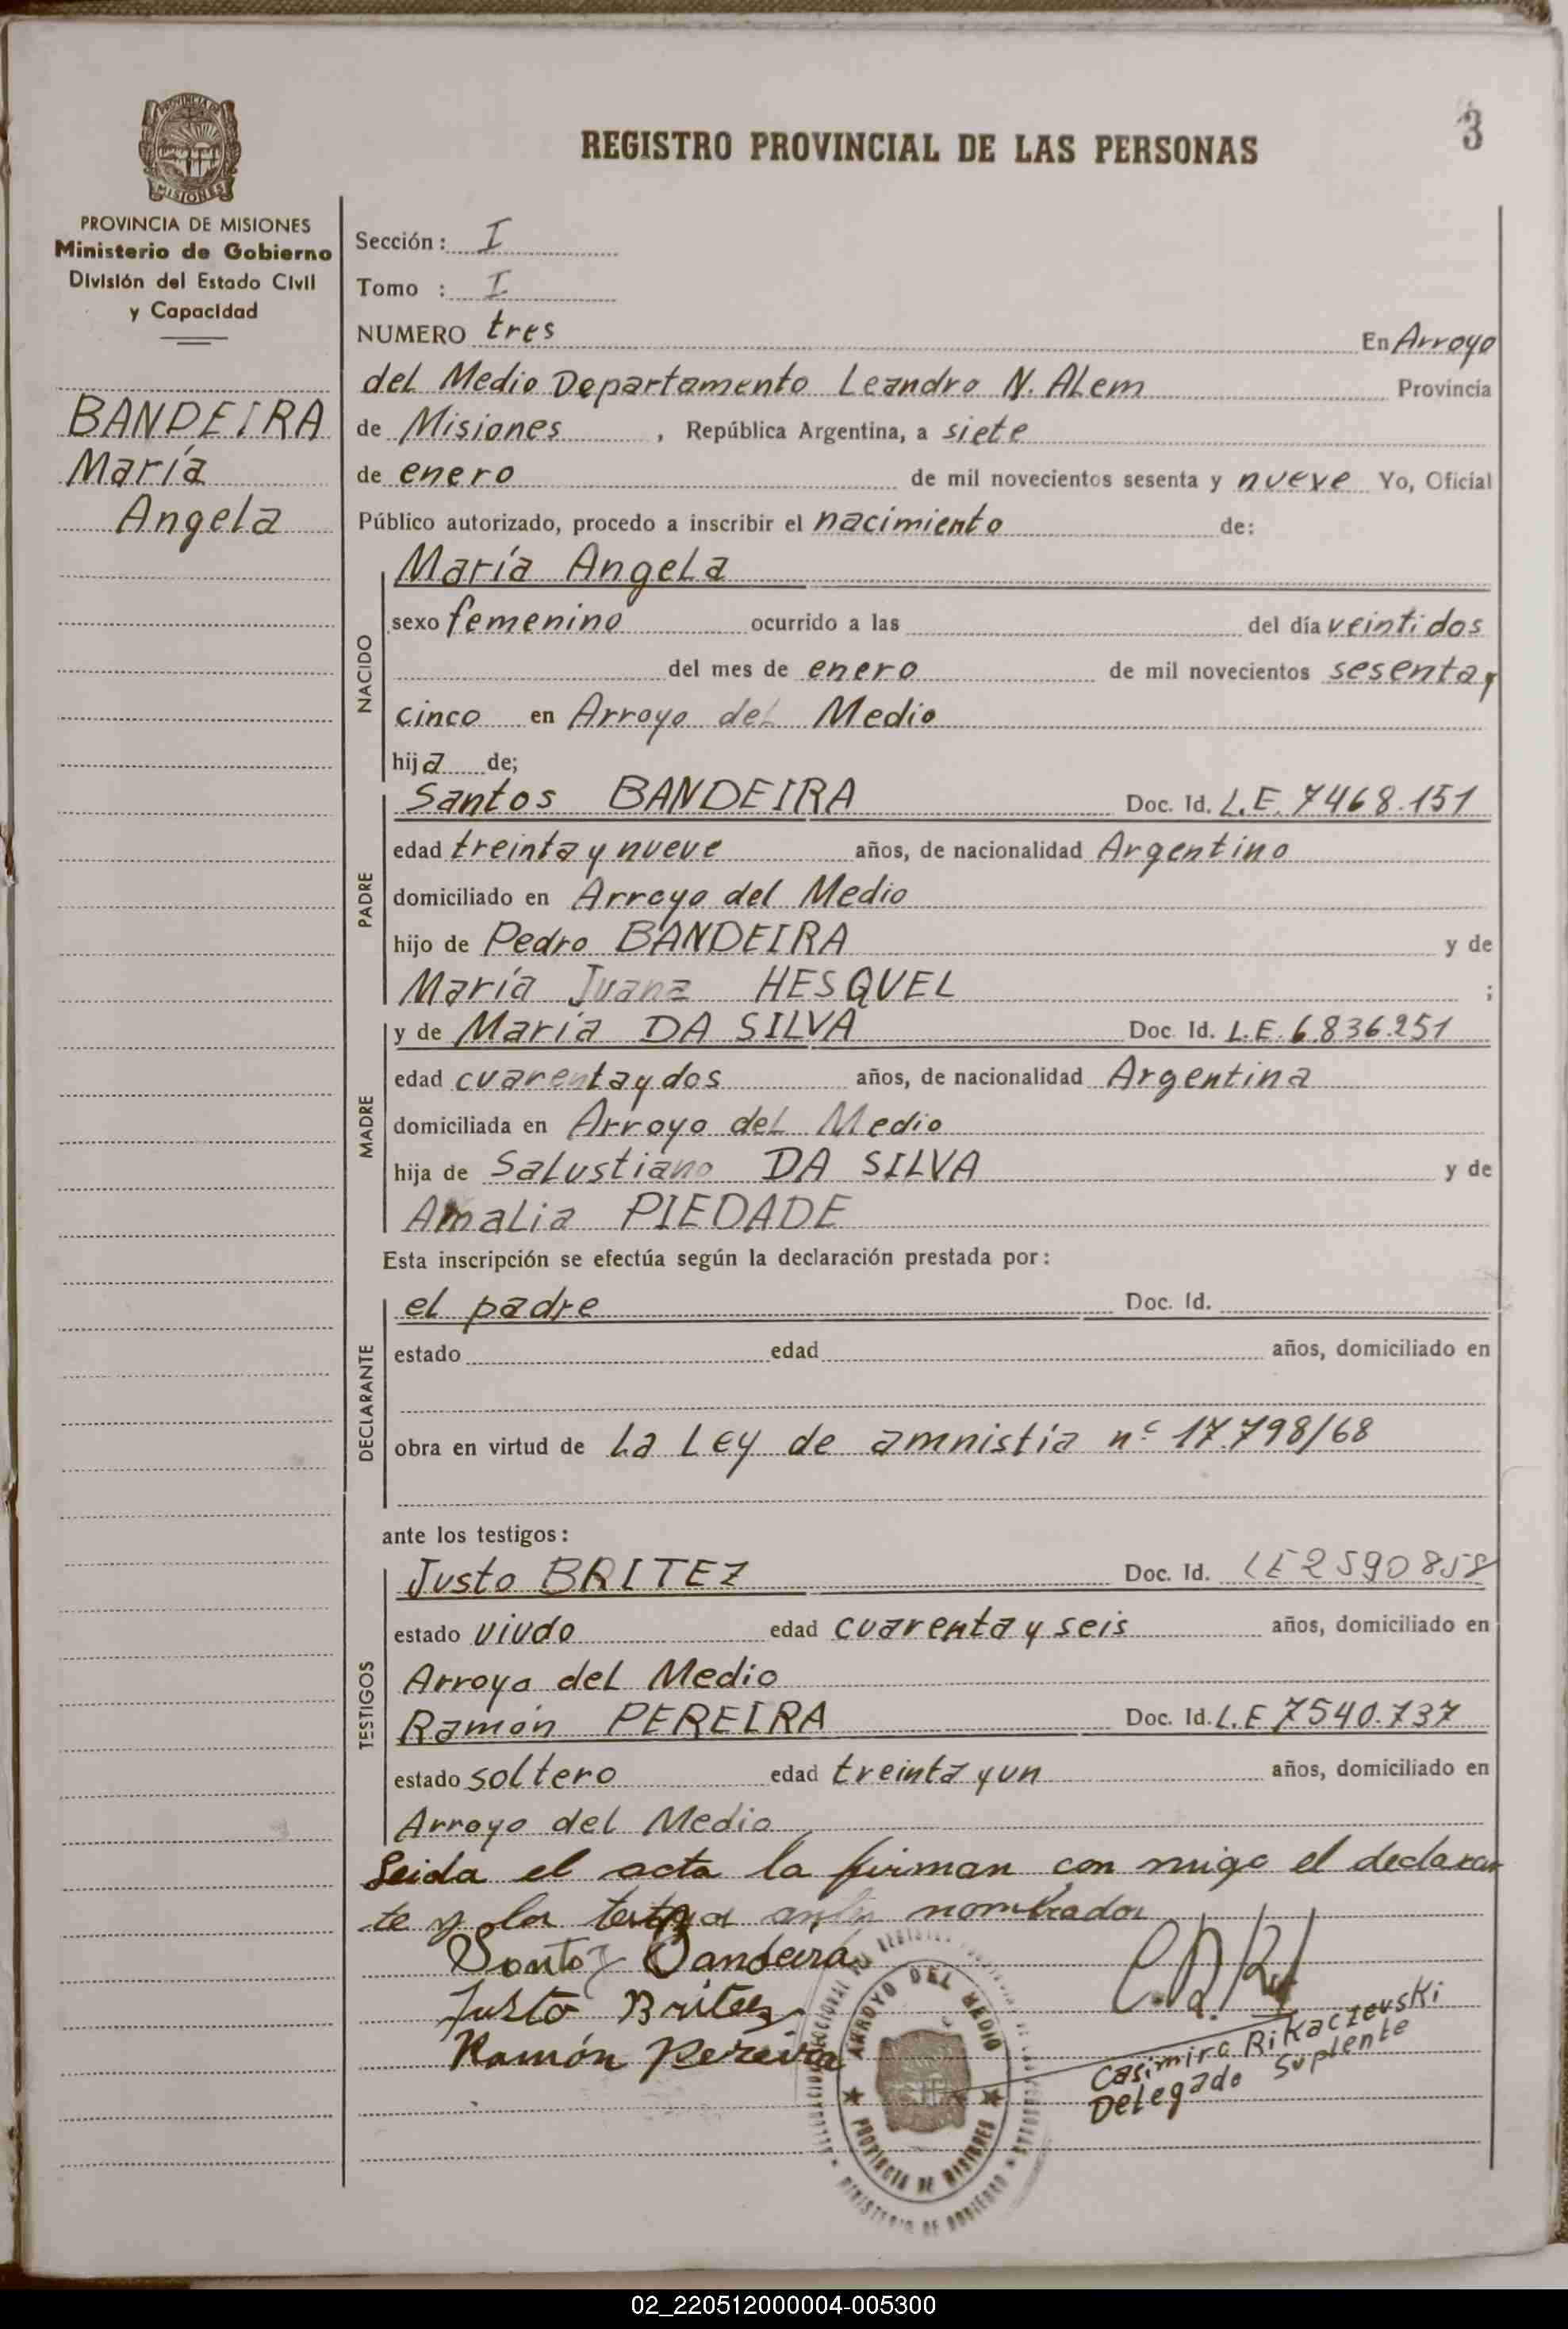 3
REGISTRO PROVINCIAL DE LAS PERSONAS
PROVINCIA DE MISIONES
Ministerio de Gobierno
División del Estado Civil
y Capacidad
BANDEIRA
María
Angela
Sección: I
Tomo : I
NUMERO tres En Arroyo
del Medio Departamento Leandro N. ALem Provincia
de Misiones , República Argentina, a siete
de enero de mil novecientos sesenta y nueve Yo, Oficial
Público autorizado, procedo a inscribir el nacimiento de:
NACIDO
María Angela
sexo femenino ocurrido a las del día veintidos
del mes de enero de mil novecientos sesenta y
cinco en Arroyo del Medio
hija de;
PADRE
Santos BANDEIRA Doc. Id. L.E. 7468.151
edad treinta y nueve años, de nacionalidad Argentino
domiciliado en Arroyo del Medio
hijo de Pedro BANDEIRA y de
María Juana HESQUEL ;
MADRE
y de María DA SILVA Doc. Id. L.E. 6.836.251
edad cuarenta y dos años, de nacionalidad Argentina
domiciliada en Arroyo del Medio
hija de Salustiano DA SILVA y de
Amalia PIEDADE
Esta inscripción se efectúa según la declaración prestada por:
DECLARANTE
el padre Doc. Id.
estado edad años, domiciliado en
obra en virtud de La Ley de amnistía nº 17.798/68
ante los testigos:
TESTIGOS
Justo BRITEZ Doc. Id. LE 2590858
estado viudo edad cuarenta y seis años, domiciliado en
Arroyo del Medio
Ramón PEREIRA Doc. Id. L.E 7540.737
estado soltero edad treinta y un años, domiciliado en
Arroyo del Medio
Leida el acta la firman con migo el declaran
te y los testigos nombrados
Santos Bandeira
Justo Britez
Ramón Pereira
ARROYO DEL MEDIO
PROVINCIA DE MISIONES
MINISTERIO DE GOBIERNO
Casimiro Rikaczevski
Delegado Suplente
02_220512000004-005300